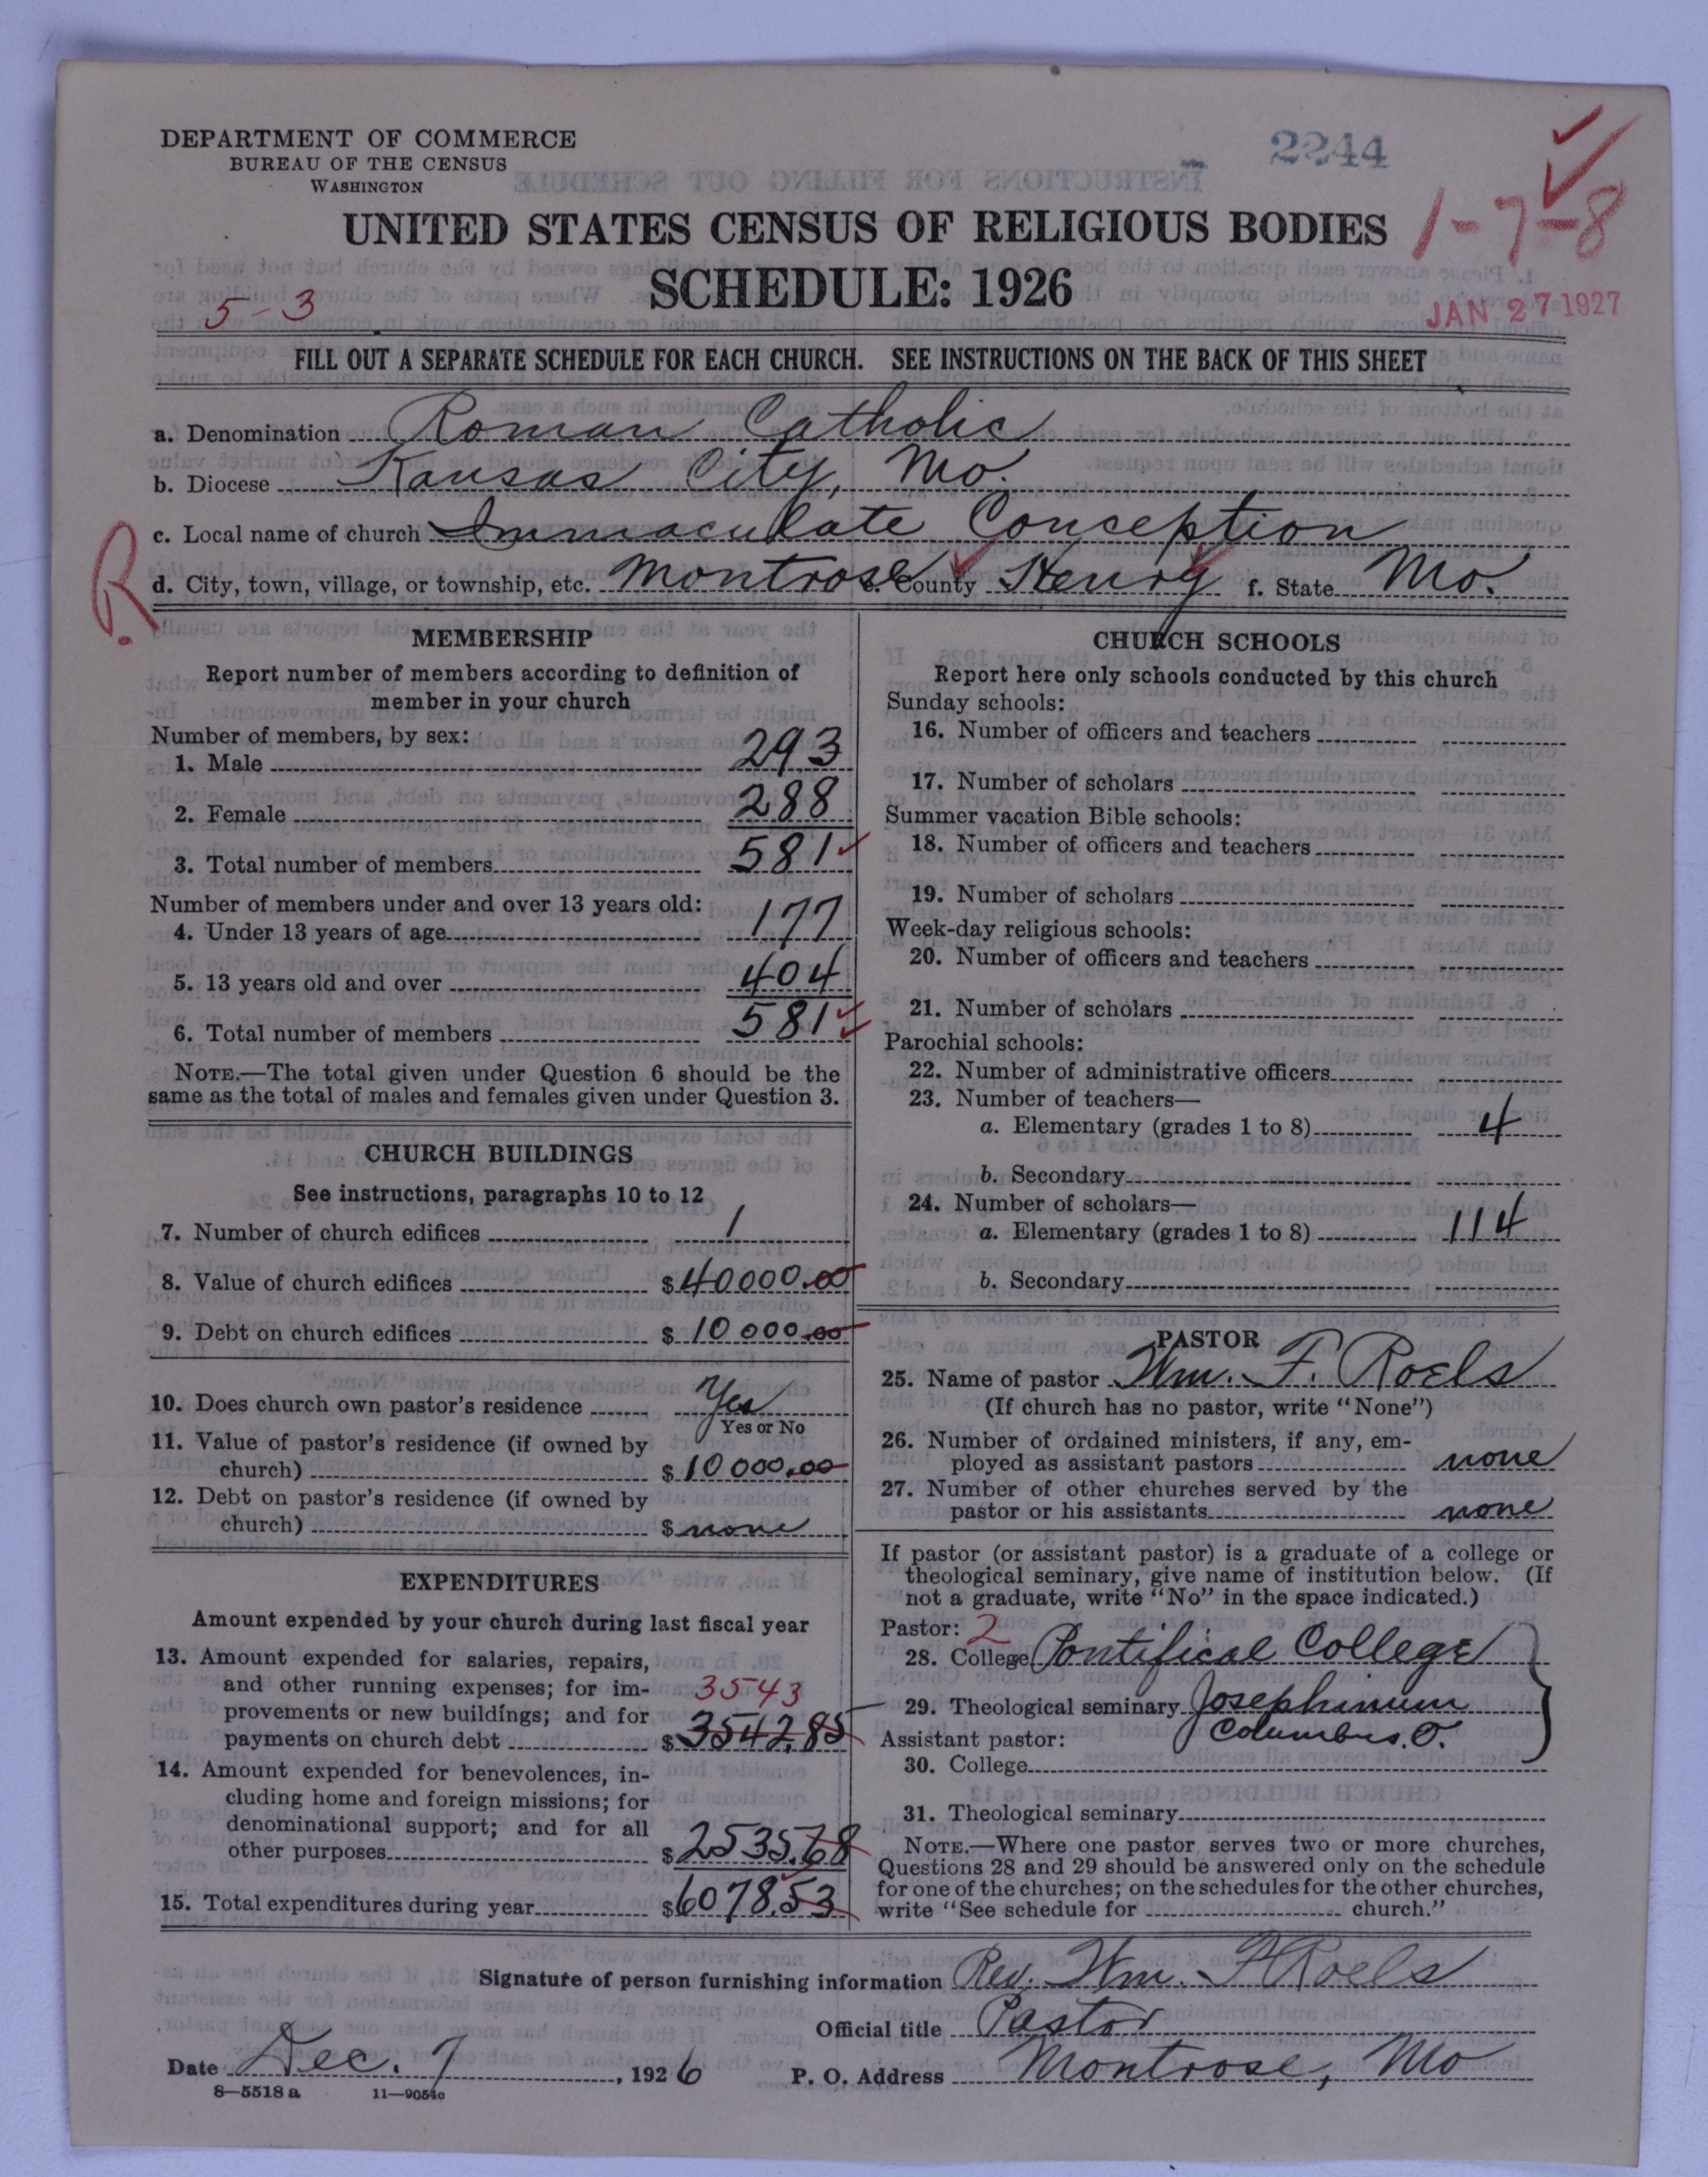 DEPARTMENT OF COMMERCE
BUREAU OF THE CENSUS
WASHINGTON
2244
UNITED STATES CENSUS OF RELIGIOUS BODIES
1-7-8
SCHEDULE: 1926
5-3
JAN 27 1927
FILL OUT A SEPARATE SCHEDULE FOR EACH CHURCH. SEE INSTRUCTIONS ON THE BACK OF THIS SHEET
a. Denomination Roman Catholic
b. Diocese Kansas City, Mo.
c. Local name of church Immaculate Conception
R
d. City, town, village, or township, etc. Montrose e. County Henry f. State Mo.
MEMBERSHIP
Report number of members according to definition of
member in your church
Number of members, by sex:
1. Male 293
2. Female 288
3. Total number of members 581
Number of members under and over 13 years old:
4. Under 13 years of age 177
5. 13 years old and over 404
6. Total number of members 581
NOTE.—The total given under Question 6 should be the
same as the total of males and females given under Question 3.
CHURCH BUILDINGS
See instructions, paragraphs 10 to 12
7. Number of church edifices 1
8. Value of church edifices $40000.00
9. Debt on church edifices $10000.00
10. Does church own pastor's residence Yes
Yes or No
11. Value of pastor's residence (if owned by
church) $10000.00
12. Debt on pastor's residence (if owned by
church) $none
EXPENDITURES
Amount expended by your church during last fiscal year
13. Amount expended for salaries, repairs,
and other running expenses; for im- 3543
provements or new buildings; and for
payments on church debt $3542.85
14. Amount expended for benevolences, in-
cluding home and foreign missions; for
denominational support; and for all
other purposes $2535.68
15. Total expenditures during year $6078.53
CHURCH SCHOOLS
Report here only schools conducted by this church
Sunday schools:
16. Number of officers and teachers
17. Number of scholars
Summer vacation Bible schools:
18. Number of officers and teachers
19. Number of scholars
Week-day religious schools:
20. Number of officers and teachers
21. Number of scholars
Parochial schools:
22. Number of administrative officers
23. Number of teachers—
a. Elementary (grades 1 to 8) 4
b. Secondary
24. Number of scholars—
a. Elementary (grades 1 to 8) 114
b. Secondary
PASTOR
25. Name of pastor Wm. F. Roels
(If church has no pastor, write "None")
26. Number of ordained ministers, if any, em-
ployed as assistant pastors none
27. Number of other churches served by the
pastor or his assistants none
If pastor (or assistant pastor) is a graduate of a college or
theological seminary, give name of institution below. (If
not a graduate, write "No" in the space indicated.)
Pastor: 2
28. College Pontifical College
29. Theological seminary Josephinum
Assistant pastor: Columbus. O.
30. College
31. Theological seminary
NOTE.—Where one pastor serves two or more churches,
Questions 28 and 29 should be answered only on the schedule
for one of the churches; on the schedules for the other churches,
write "See schedule for church."
Signature of person furnishing information Rev. Wm. F Roels
Official title Pastor
Date Dec. 7, 1926 P. O. Address Montrose, Mo
8—5518 a 11—9054c